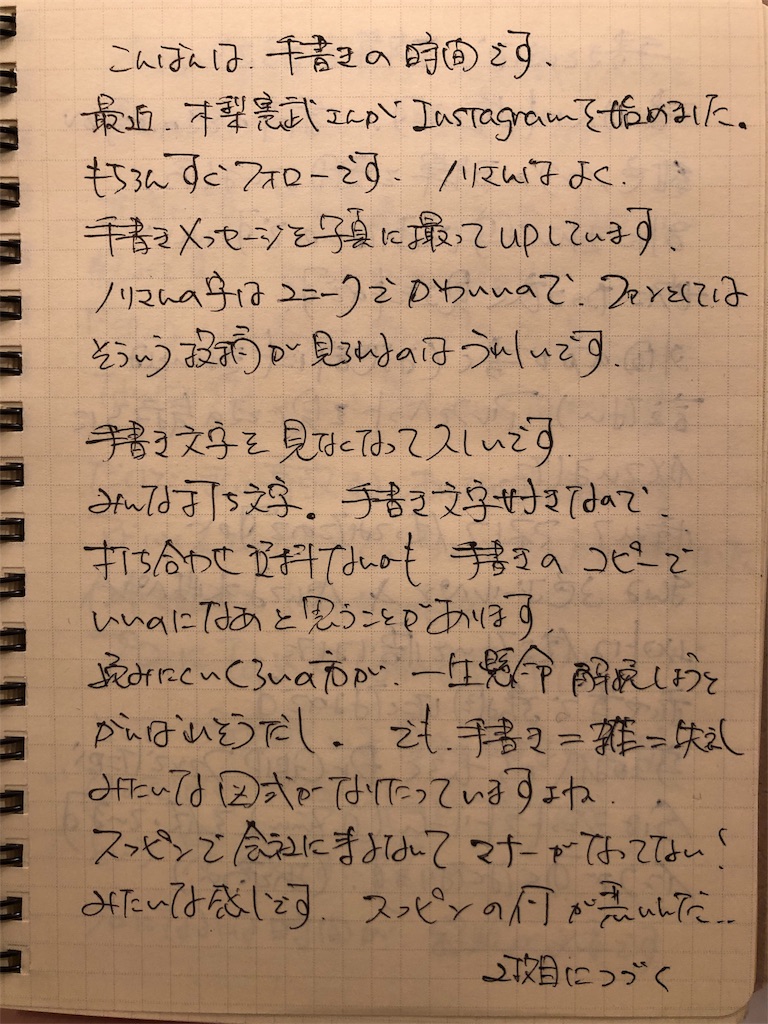 こんばんは、手書きの時間です。
最近、木梨憲武さんがInstagramを始めました。
もちろんすぐフォローです。ノリさんはよく、
手書きメッセージを写真に撮ってupしています。
ノリさんの字はユニークでかわいいので、ファンとしては
そういう投稿が見れるのはうれしいです。
手書き文字を見なくなって久しいです。
みんな打ち文字。手書き文字好きなので、
打ち合わせ資料なんかも手書きのコピーで
いいのになあと思うことがあります。
読みにくいくらいの方が、一生懸命解読しようと
がんばれそうだし。でも、手書き=雑=失礼
みたいな図式がなりたっていますよね。
スッピンで会社に来るなんてマナーがなってない!
みたいな感じです。スッピンの何が悪いんだ…
2枚目につづく